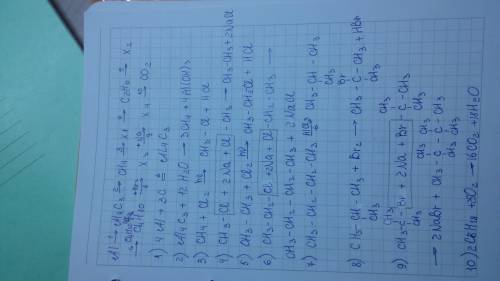 Al → Al4C3 → CH4 → X1 → C2H6 → X2
1) 4Al + 3C → Al4C3
2) Al4C3 + 12H2O → 3CH4 + 4Al(OH)3
3) CH4 + Cl hν→ CH3-Cl + HCl
4) CH3-Cl + 2Na + Cl-CH3 → CH3-CH3 + 2NaCl
5) CH3-CH3 + Cl2 hν→ CH3-CH2Cl + HCl
6) CH3-CH2-Cl + 2Na + Cl-CH2-CH3 →
CH3-CH2-CH2-CH3 + 2NaCl
7) CH3-CH2-CH2-CH3 → CH3-CH-CH3
CH3
Br
8) CH3-CH-CH3 + Br2 → CH3-C-CH3 + HBr
CH3 CH3
CH3 CH3
9) CH3-C-Br + 2Na + Br-C-CH3
CH3 CH3
CH3 CH3
→ 2NaBr + CH3-C-C-CH3
CH3 CH3
10) 2C8H18 + 5O2 → 16CO2 + H2O